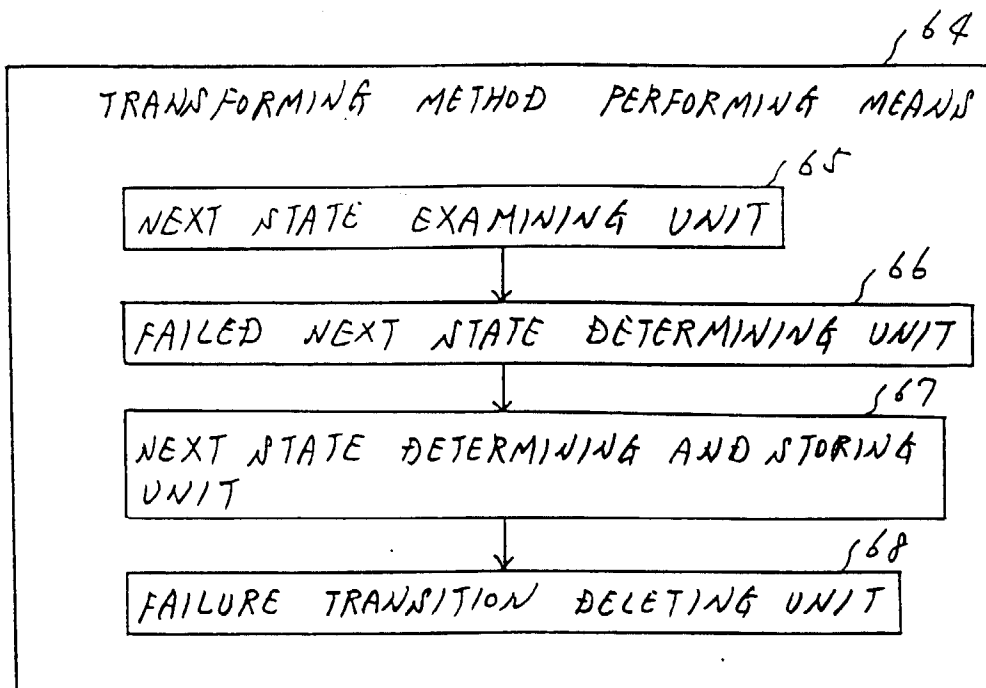 64
TRANSFORMING METHOD PERFORMING MEANS
65
NEXT STATE EXAMINING UNIT
66
FAILED NEXT STATE DETERMINING UNIT
67
NEXT STATE DETERMINING AND STORING
UNIT
68
FAILURE TRANSITION DELETING UNIT